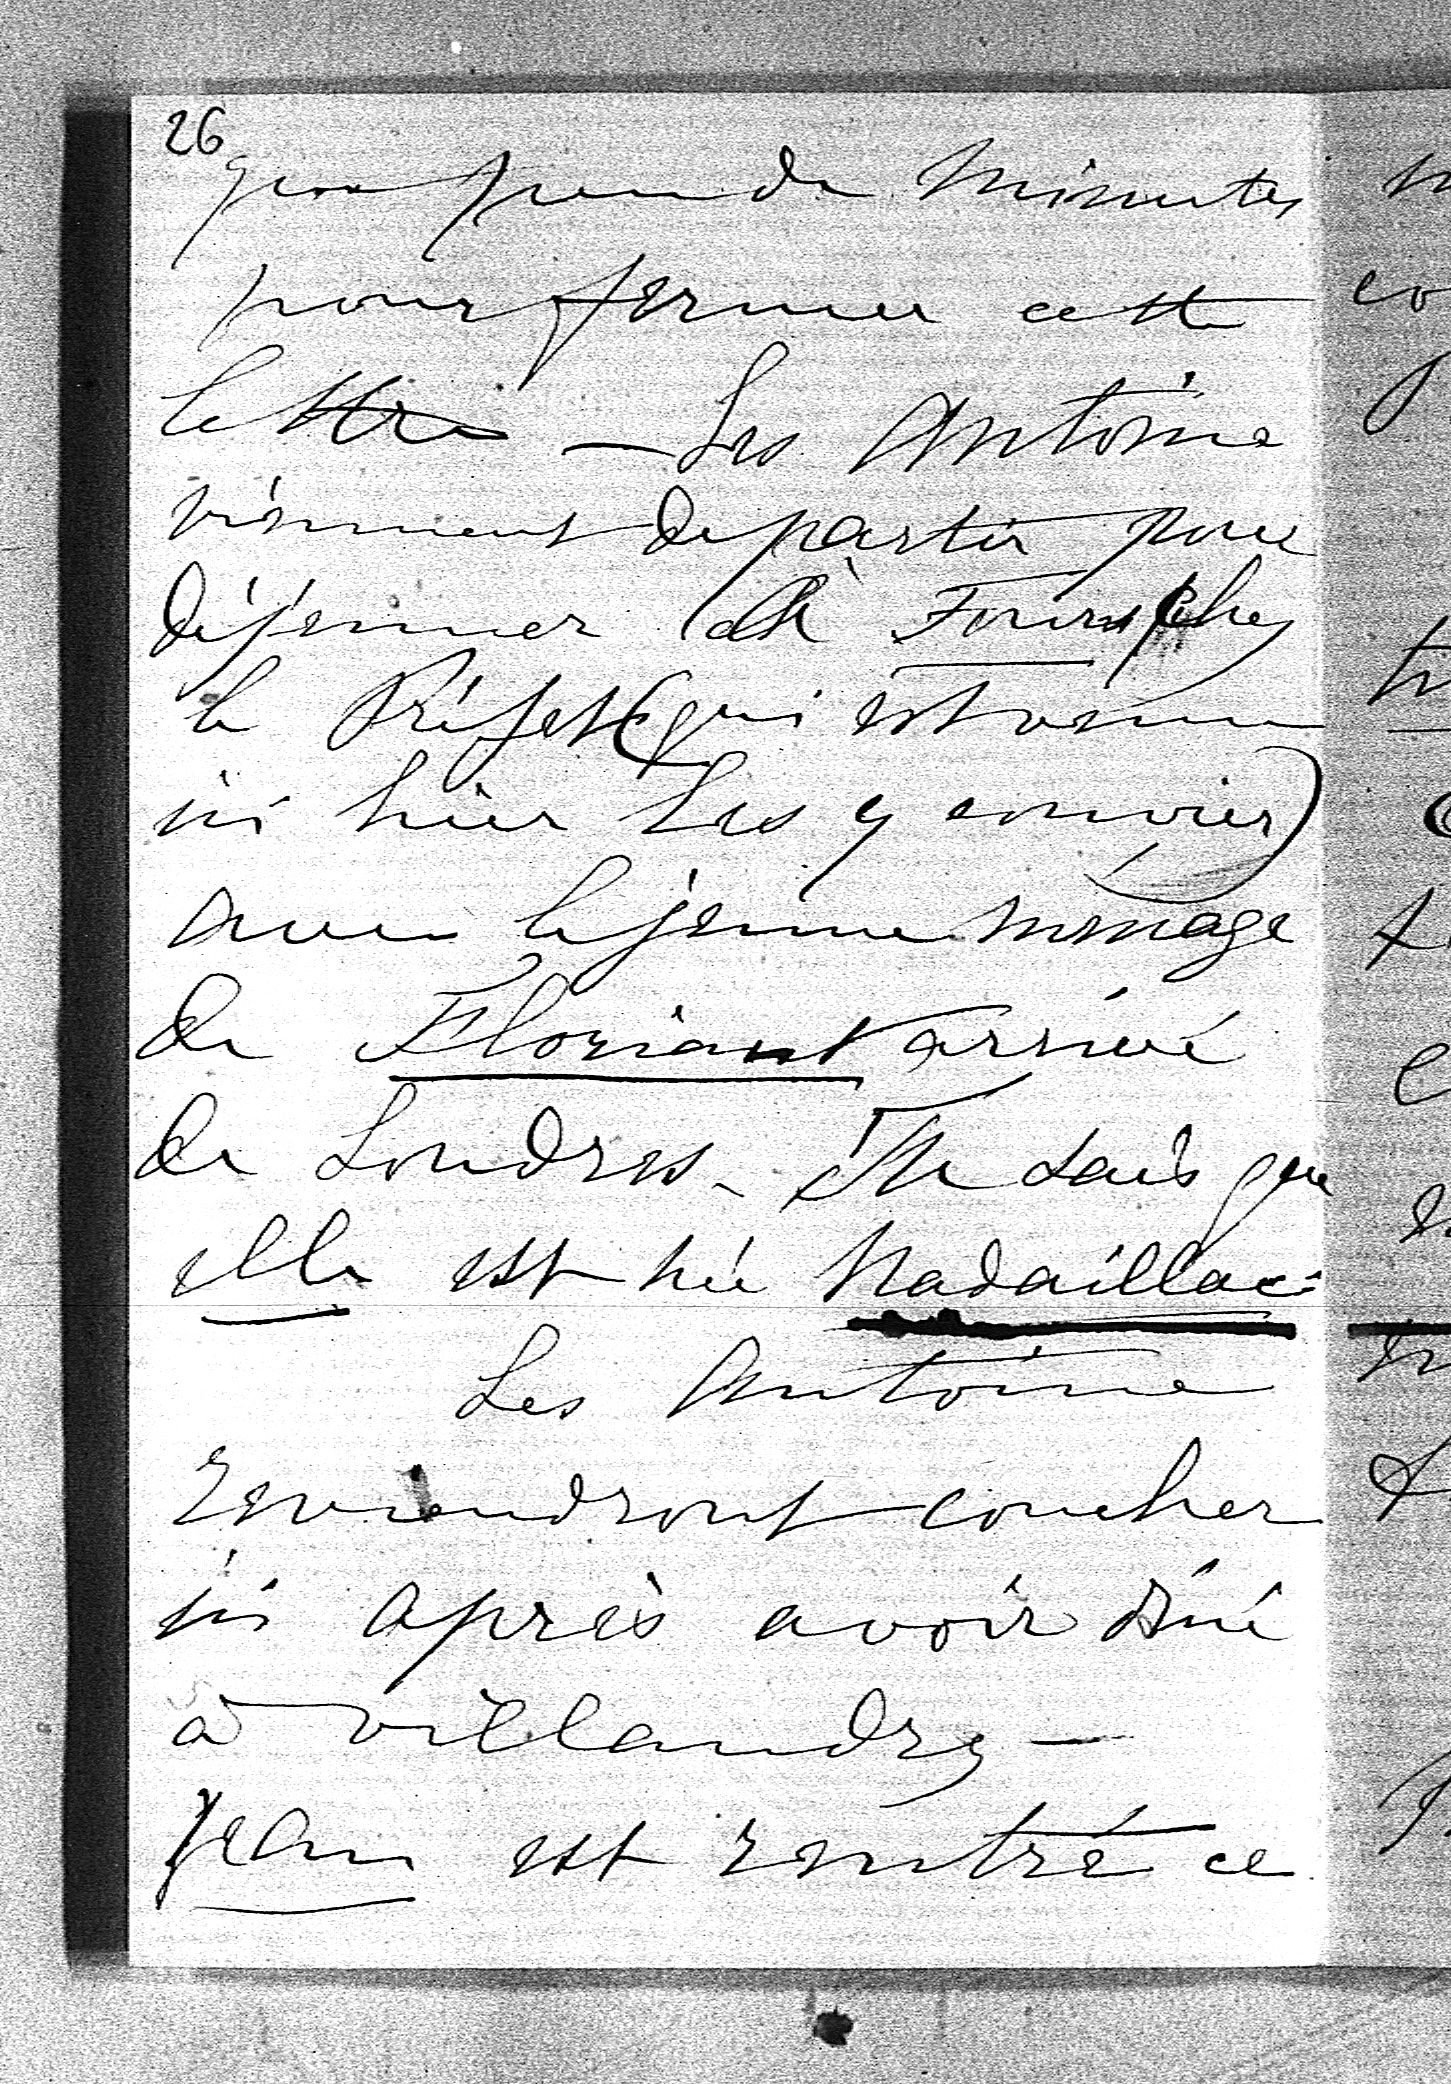 26
que peu de minutes
pour fermer cette
lettre – Les Antoine
viennent de partir pour
déjeuner à Tours (chez
le Préfet (qui est venu
ici hier les y convier)
avec le jeune ménage
de Floriant arrivé
de Londres – Tu sais que
elle est née Nadaillac
Les Antoine
reviendront coucher
ici après avoir dîné
à Villandry –
Jean est rentré ce